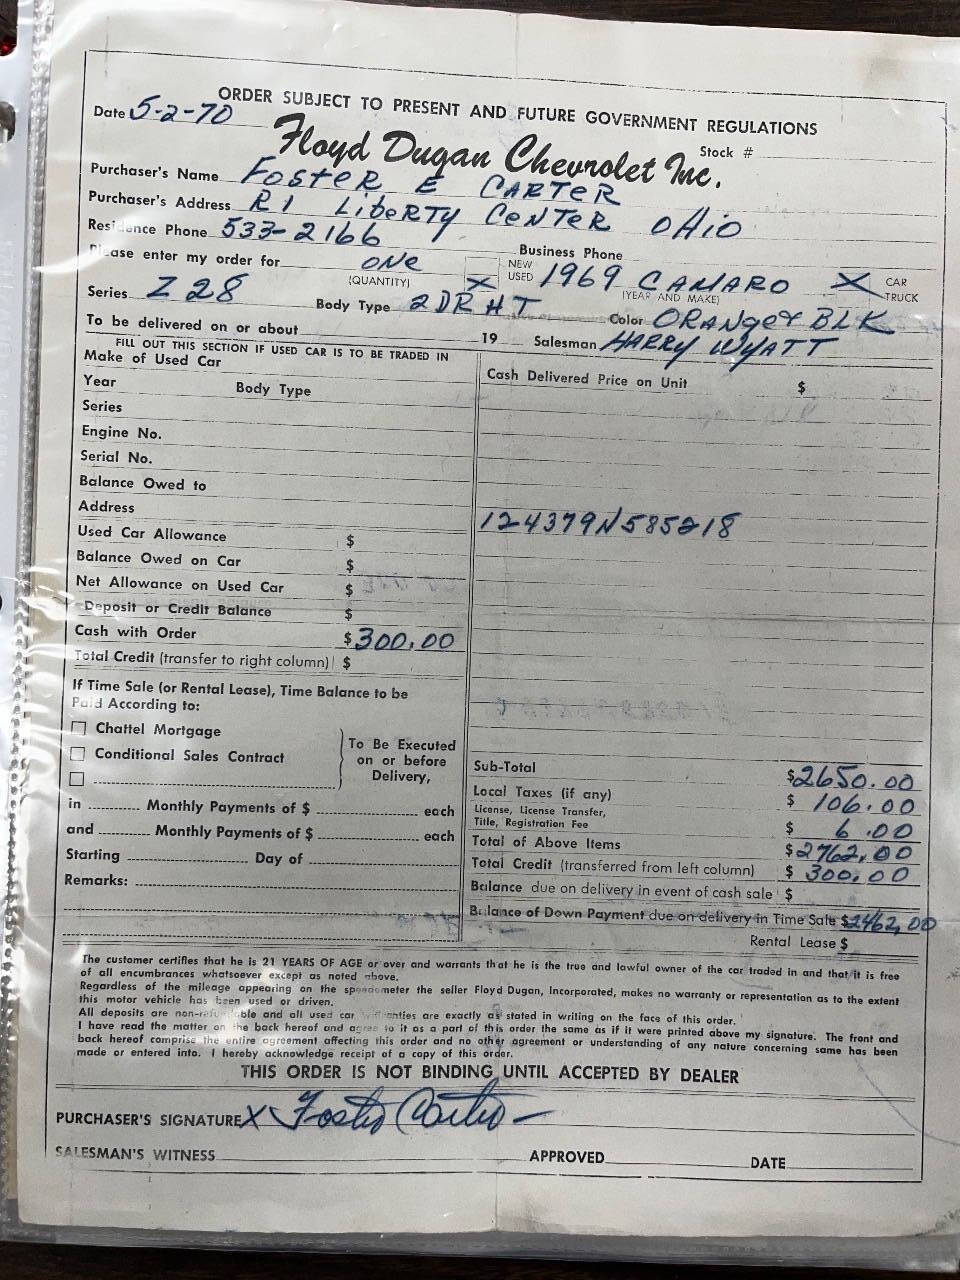 ORDER SUBJECT TO PRESENT AND FUTURE GOVERNMENT REGULATIONS
Date 5-2-70
Floyd Dugan Chevrolet Inc.
Stock #
Purchaser's Name FOSTER E CARTER
Purchaser's Address R1 LIBERTY CENTER OHIO
Residence Phone 533-2166
Business Phone
Please enter my order for ONE (QUANTITY)
NEW
X USED 1969 CAMARO (YEAR AND MAKE) X CAR
TRUCK
Series Z28 Body Type 2DR HT Color ORANGE & BLK
To be delivered on or about 19 Salesman HARRY WYATT
FILL OUT THIS SECTION IF USED CAR IS TO BE TRADED IN
Make of Used Car
Year Body Type
Series
Engine No.
Serial No.
Balance Owed to
Address
Used Car Allowance $
Balance Owed on Car $
Net Allowance on Used Car $
Deposit or Credit Balance $
Cash with Order $300.00
Total Credit (transfer to right column) $
If Time Sale (or Rental Lease), Time Balance to be
Paid According to:
Chattel Mortgage
Conditional Sales Contract
To Be Executed
on or before
Delivery,
in Monthly Payments of $ each
and Monthly Payments of $ each
Starting Day of
Remarks:
Cash Delivered Price on Unit $
124379N585218
Sub-Total $2650.00
Local Taxes (if any) $ 106.00
License, License Transfer,
Title, Registration Fee $ 6.00
Total of Above Items $2762.00
Total Credit (transferred from left column) $ 300.00
Balance due on delivery in event of cash sale $
Balance of Down Payment due on delivery in Time Sale $2462.00
Rental Lease $
The customer certifies that he is 21 YEARS OF AGE or over and warrants that he is the true and lawful owner of the car traded in and that it is free
of all encumbrances whatsoever except as noted above.
Regardless of the mileage appearing on the speedometer the seller Floyd Dugan, Incorporated, makes no warranty or representation as to the extent
this motor vehicle has been used or driven.
All deposits are non-refundable and all used car warranties are exactly as stated in writing on the face of this order.
I have read the matter on the back hereof and agree to it as a part of this order the same as if it were printed above my signature. The front and
back hereof comprise the entire agreement affecting this order and no other agreement or understanding of any nature concerning same has been
made or entered into. I hereby acknowledge receipt of a copy of this order.
THIS ORDER IS NOT BINDING UNTIL ACCEPTED BY DEALER
PURCHASER'S SIGNATURE X Foster Carter
SALESMAN'S WITNESS APPROVED DATE